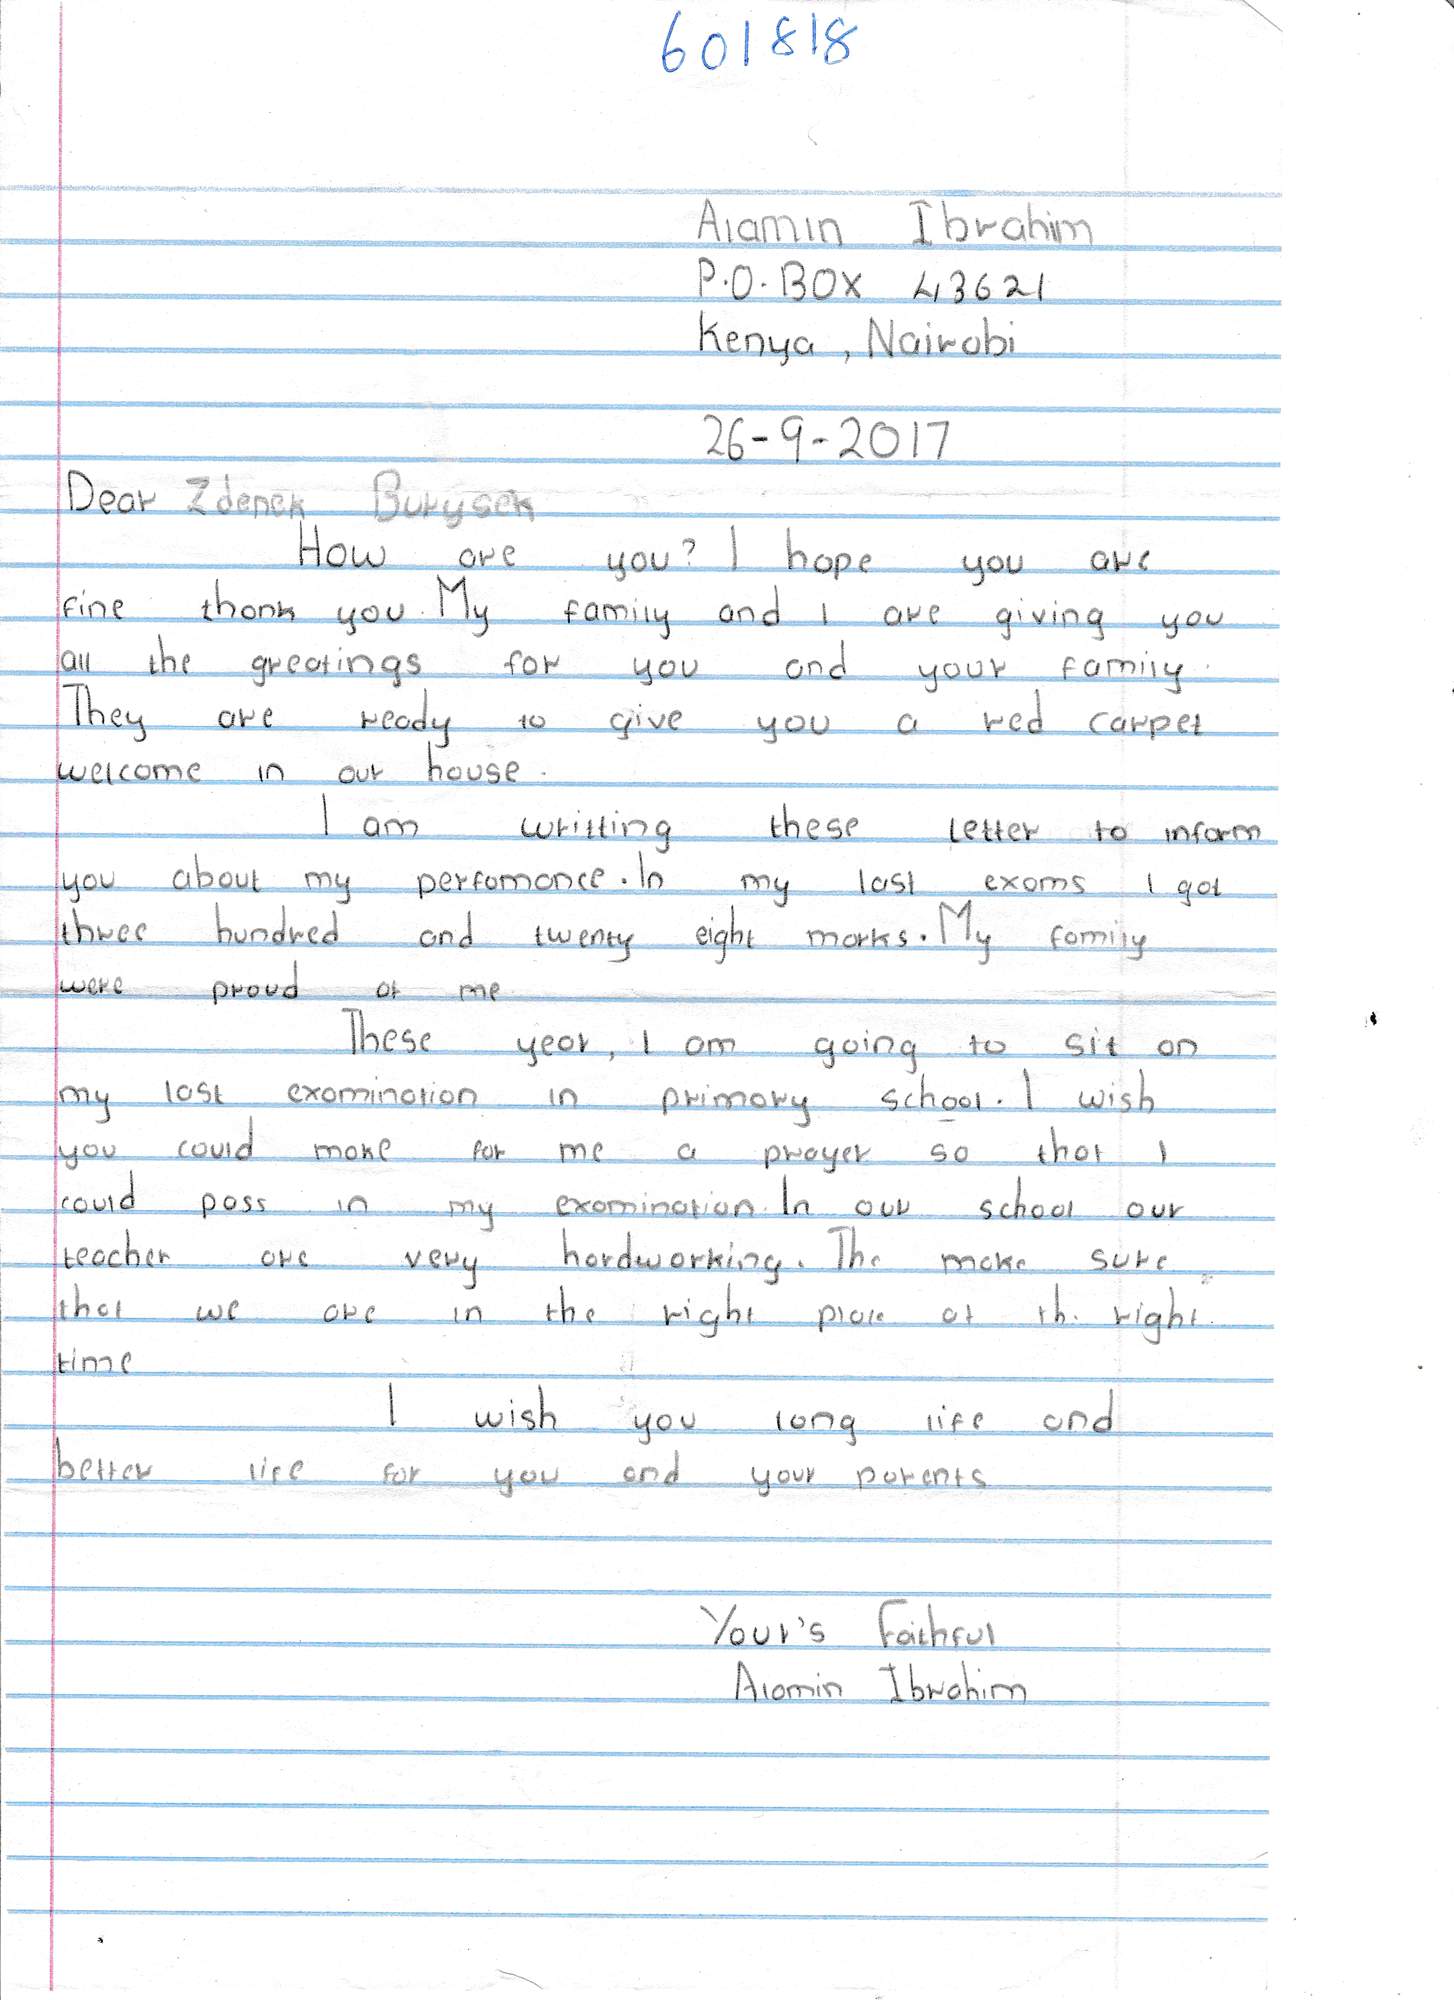 601818
Alamin Ibrahim
P.O.BOX 43621
Kenya, Nairobi
26-9-2017
Dear Zdenek Burysek
How are you? I hope you are
fine thank you. My family and I are giving you
all the greatings for you and your family.
They are ready to give you a red carpet
welcome in our house.
I am writting these letter to inform
you about my perfomance. In my last exams I got
three hundred and twenty eight marks. My family
were proud of me
These year, I am going to sit on
my last examination in primary school. I wish
you could make for me a prayer so that I
could pass in my examination. In our school our
teacher are very hardworking. The make sure
that we are in the right place at th. right
time
I wish you long life and
better life for you and your parents
Your's Faithful
Alamin Ibrahim